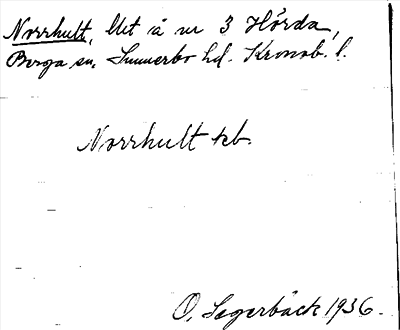 Norrhult, lht å nr 3 Hörda,
Berga sn. Sunnerbo hd. Kronob. l.
Norrhult kb.
O. Segerbäck 1936.